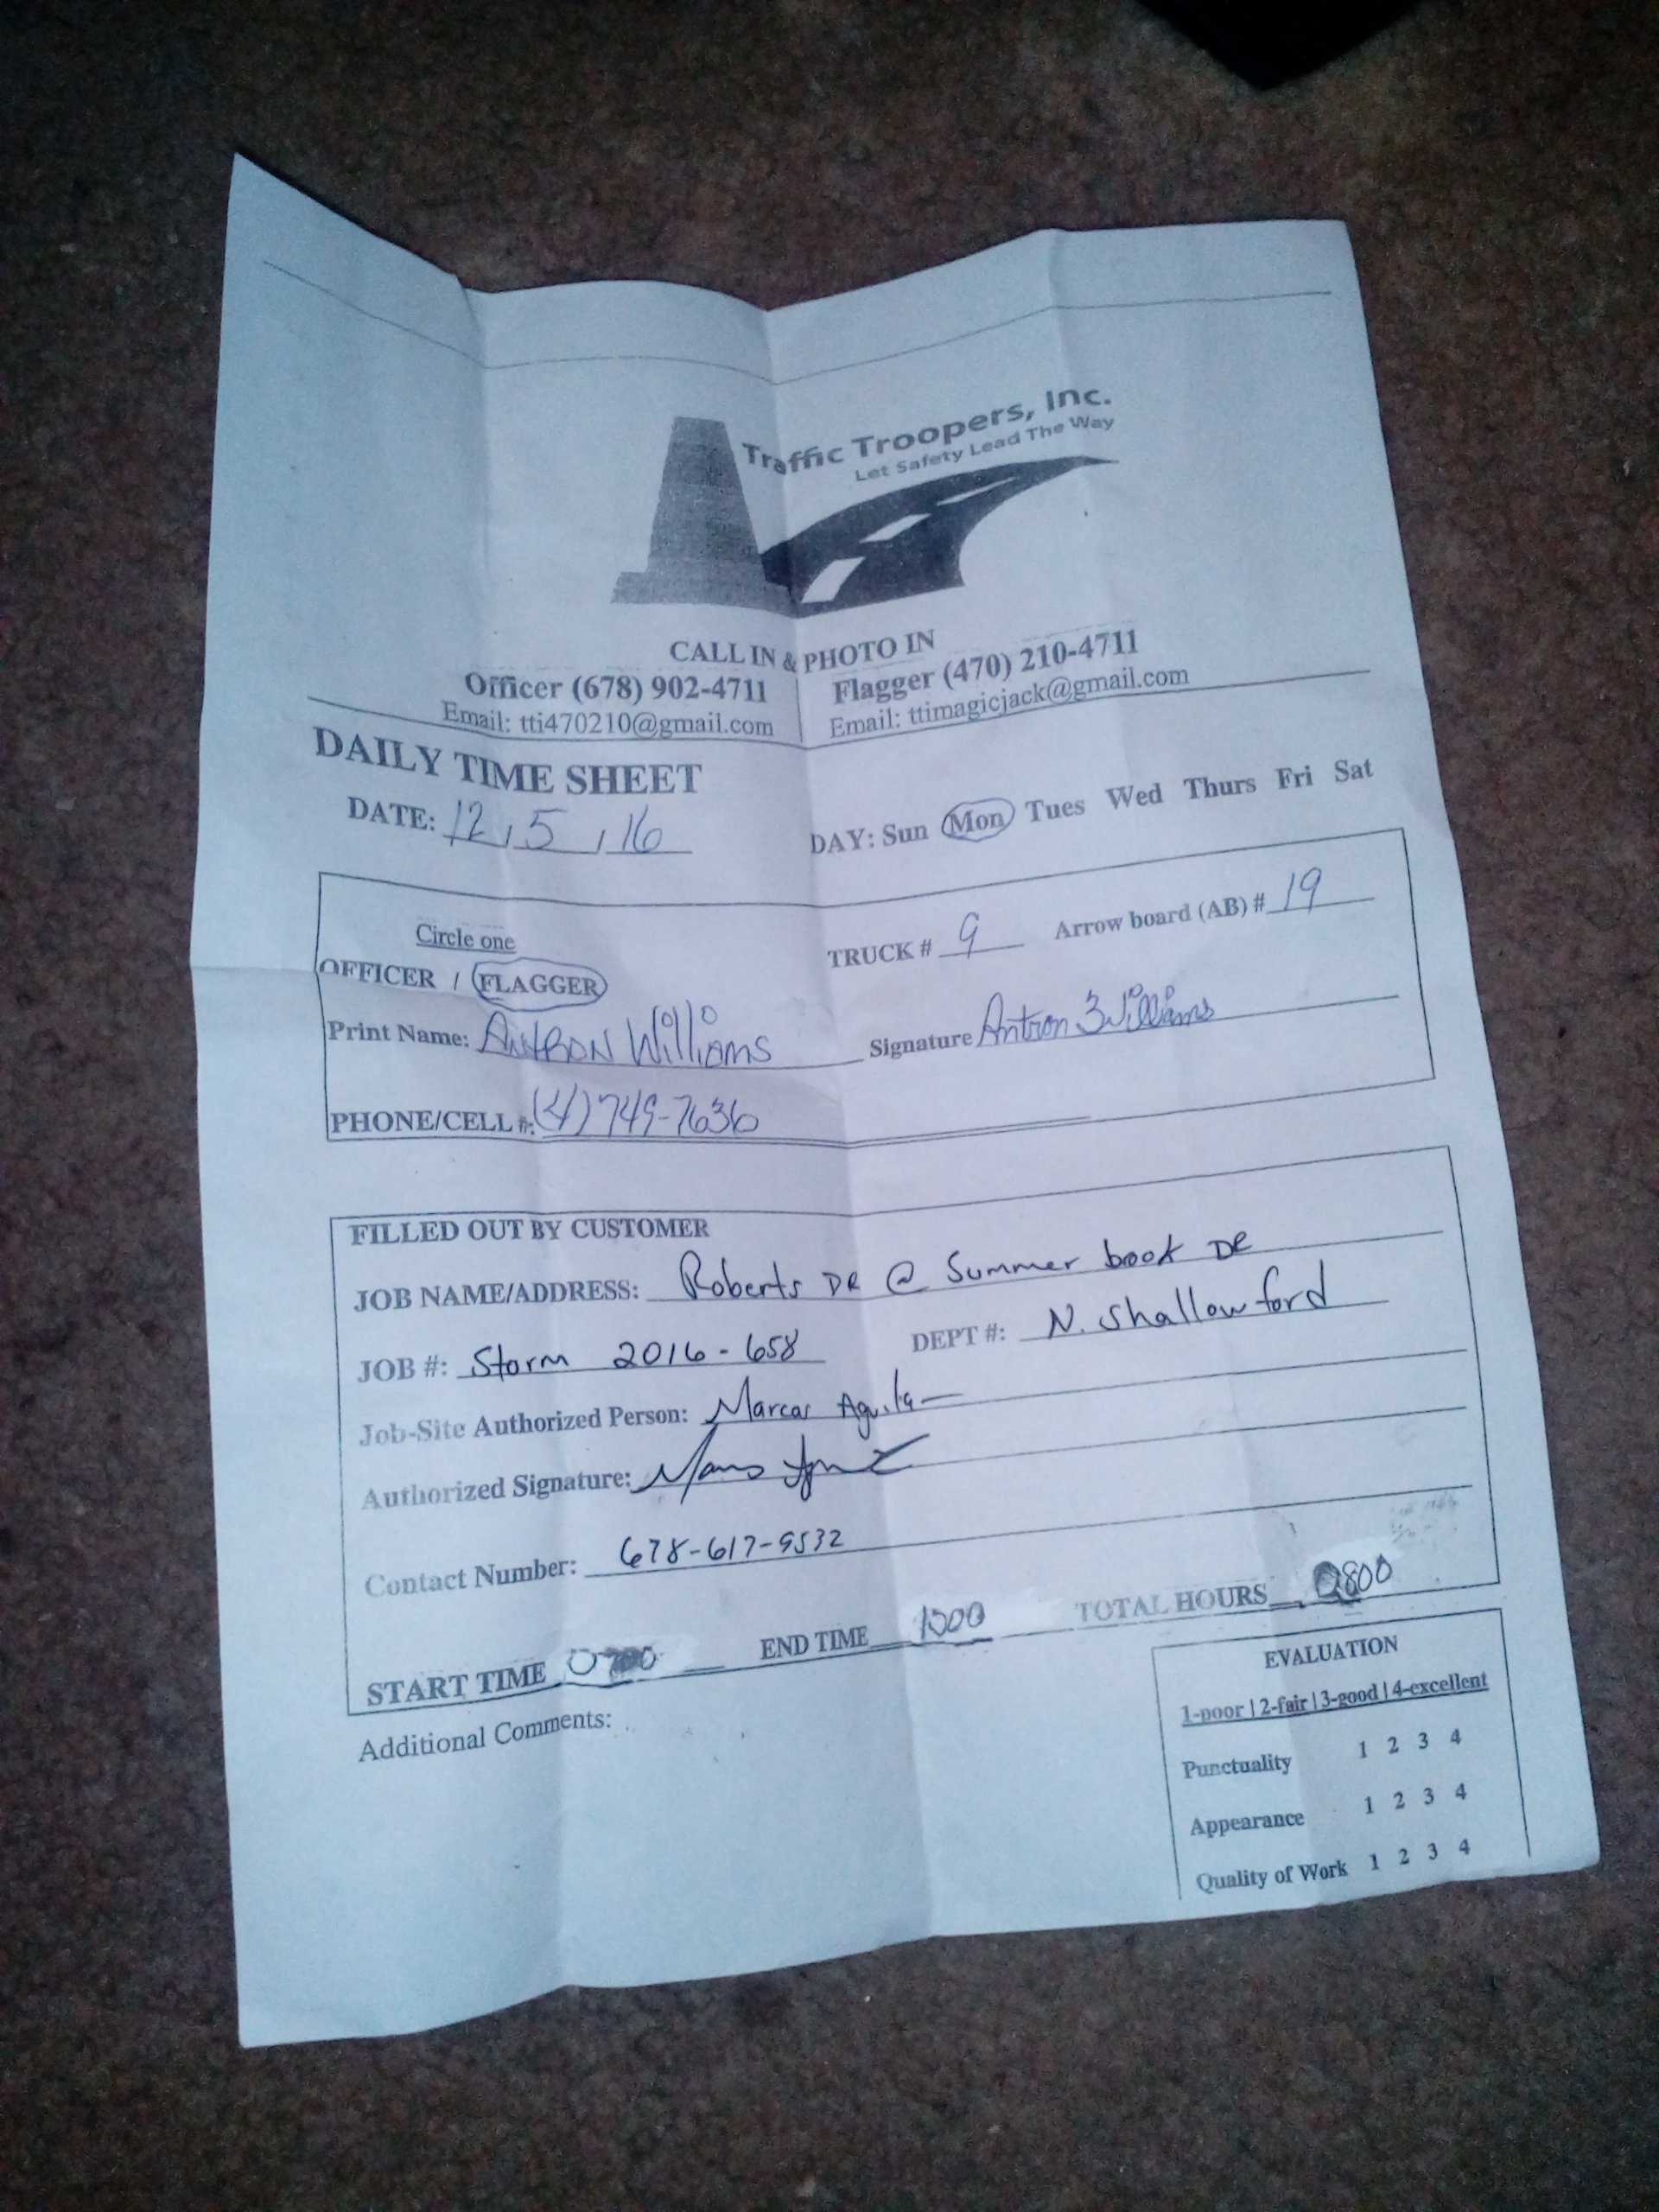 Traffic Troopers, Inc.
Let Safety Lead The Way
CALL IN & PHOTO IN
Officer (678) 902-4711 Flagger (470) 210-4711
Email: tti470210@gmail.com Email: ttimagicjack@gmail.com
DAILY TIME SHEET
DATE: 12, 5, 16 DAY: Sun Mon Tues Wed Thurs Fri Sat
Circle one
TRUCK # 9 Arrow board (AB) # 19
OFFICER / FLAGGER
Print Name: Antron Williams Signature Antron Williams
PHONE/CELL #: (4) 749-7636
FILLED OUT BY CUSTOMER
JOB NAME/ADDRESS: Roberts DR @ Summer brook DR
JOB #: Storm 2016-658 DEPT #: N. Shallowford
Job-Site Authorized Person: Marcas Aguila
Authorized Signature:
Contact Number: 678-617-9532
START TIME END TIME 1500 TOTAL HOURS 0800
Additional Comments:
EVALUATION
1-poor | 2-fair | 3-good | 4-excellent
Punctuality 1 2 3 4
Appearance 1 2 3 4
Quality of Work 1 2 3 4